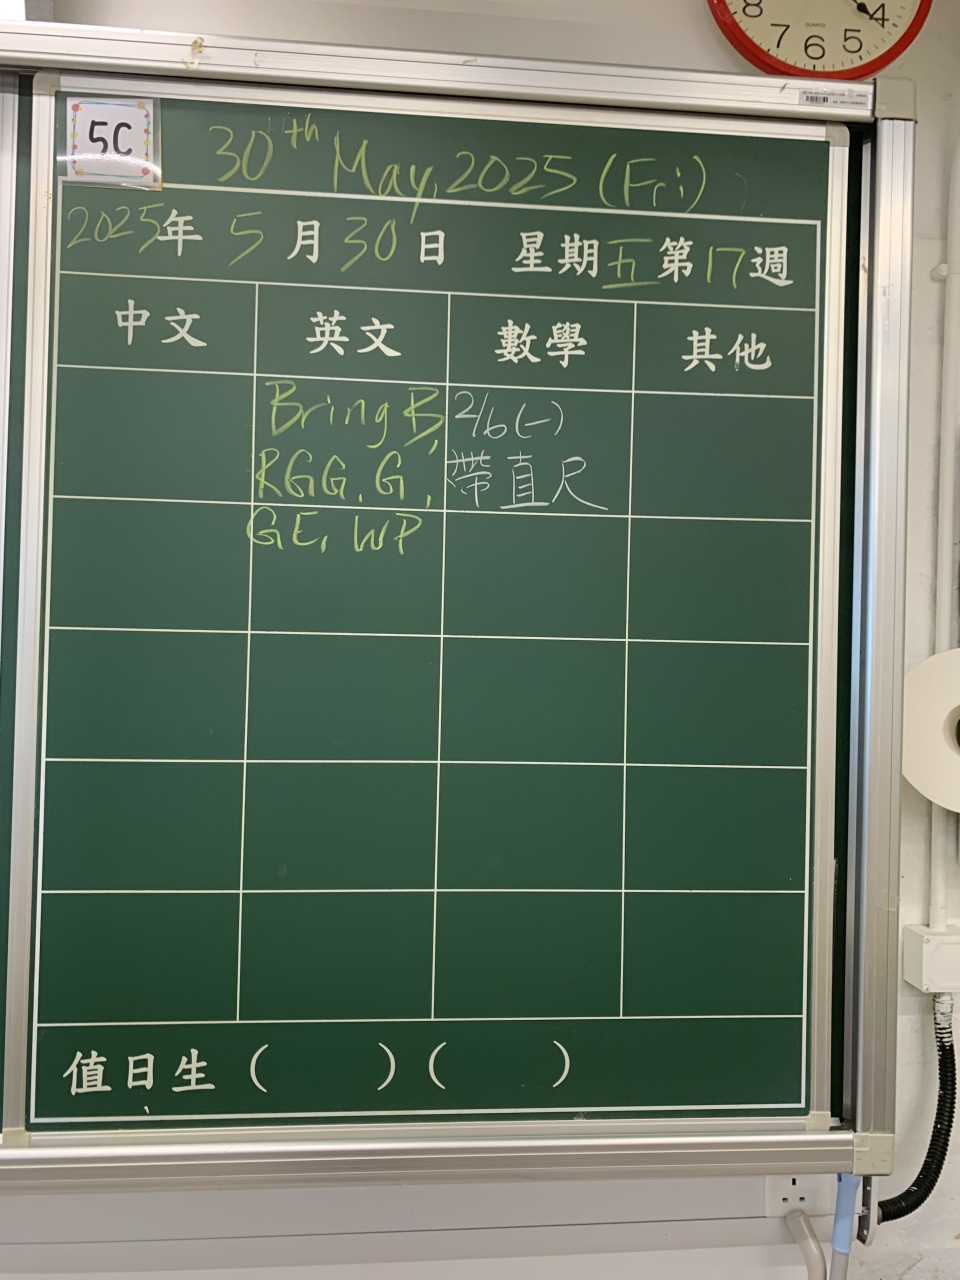 8 4
7 6 5
QUARTZ
5C
30th May, 2025 (Fri)
2025年 5 月 30 日 星期五第17週
中文 英文 數學 其他
Bring B,
RGG, G,
GE, WP
2/6(一)
帶直尺
值日生 ( ) ( )